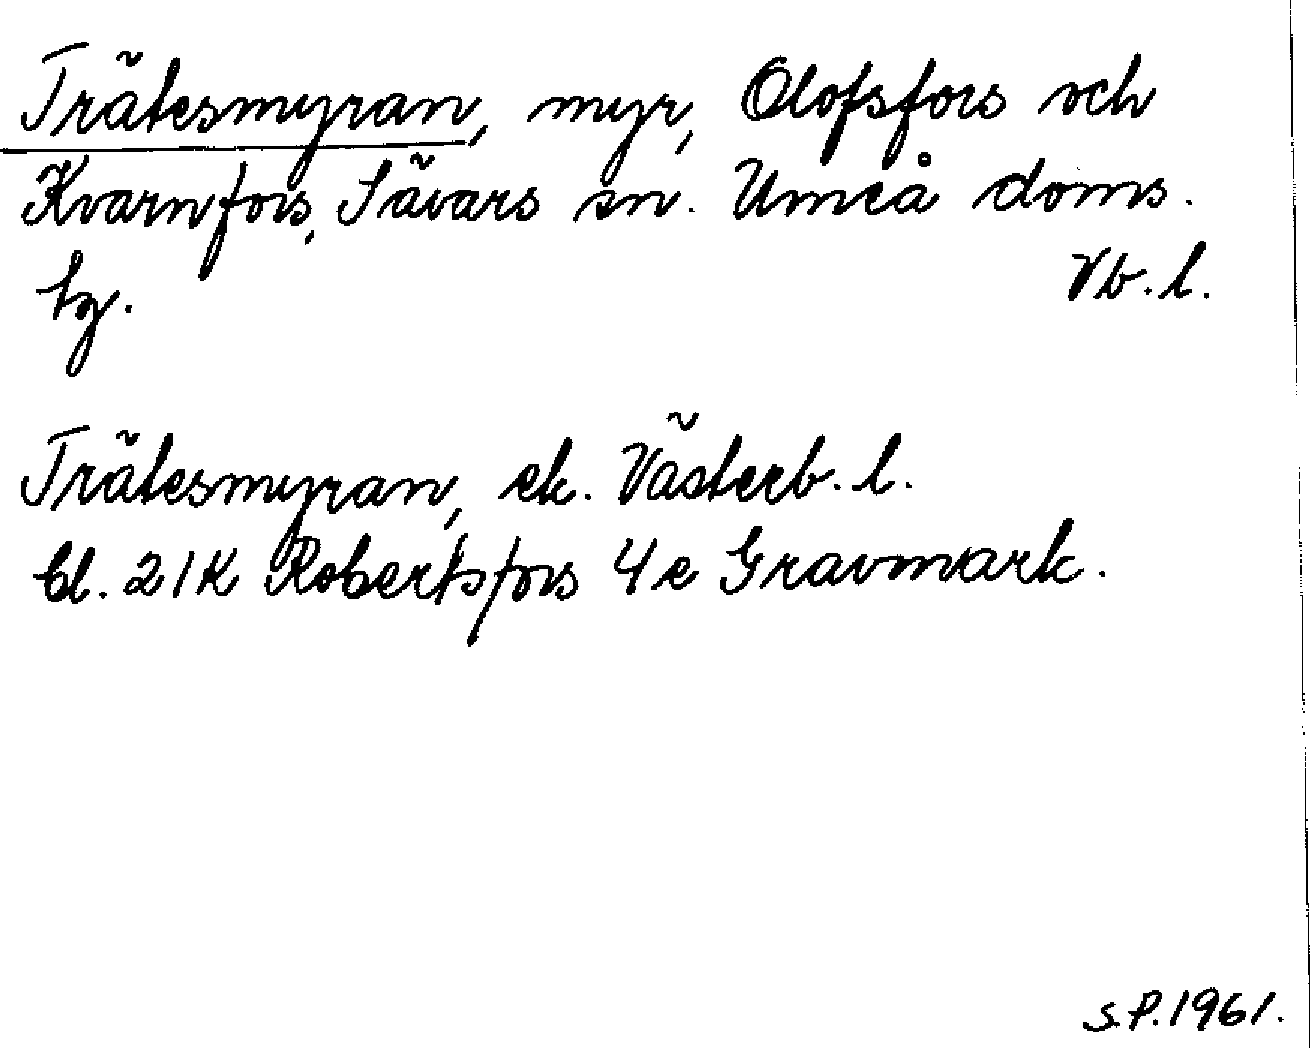 Trätesmyran, myr, Olofsfors och
Kvarnfors, Sävars sn. Umeå doms.
hg. Vb. l.
Trätesmyran, ek. Västerb. l.
bl. 21K Robertsfors 4e Gravmark.
S.P. 1961.